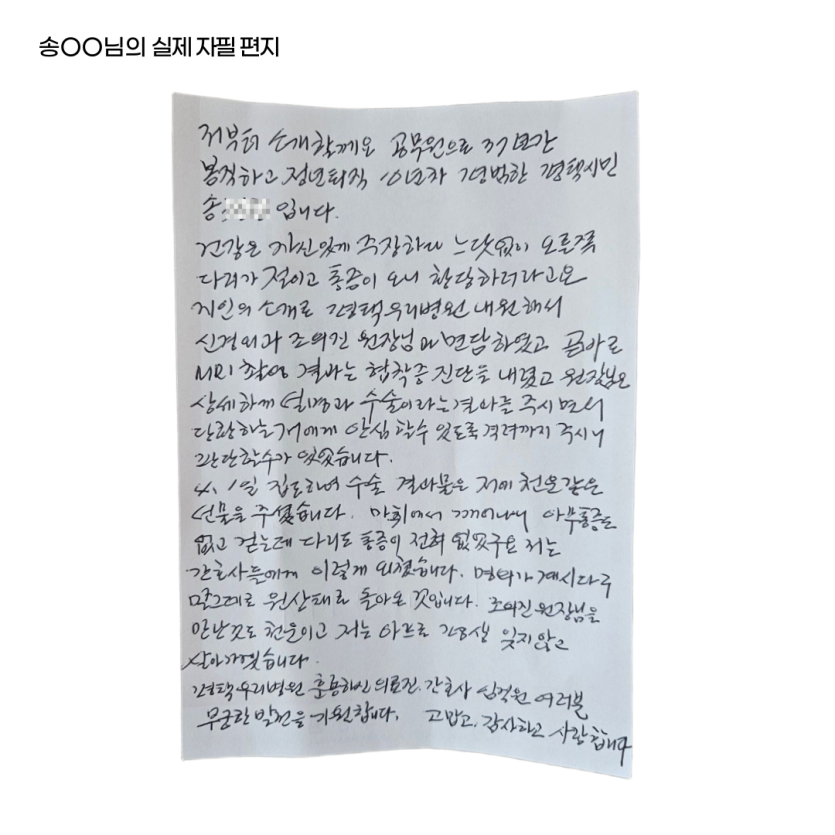 송○○님의 실제 자필 편지
저부터 소개할께요 공무원으로 37년간
봉직하고 정년퇴직 10년차 평범한 평택시민
송 입니다.
건강은 자신있게 주장하다 느닷없이 오른쪽
다리가 절이고 통증이 오니 황당하더라고요
지인의 소개로 평택우리병원 내원해서
신경외과 조의진 원장님과 면담하였고 곧바로
MRI 촬영 결과는 협착증 진단을 내렸고 원장님은
상세하게 설명과 수술이라는 결과를 주시면서
당황하는 저에게 안심 할수 있도록 격려까지 주시니
결단할수가 있었습니다.
4. 1일 집도하여 수술 결과물은 저에 천운같은
선물을 주셨습니다. 마취에서 깨어나서 아무통증도
없고 걷는데 다리도 통증이 전혀 없었구요 저는
간호사들에게 이렇게 외쳤습니다. 명의가 계시다구
말그대로 원상태로 돌아온 것입니다. 조의진 원장님을
만난것도 천운이고 저는 앞으로 평생 잊지않고
살아가겠습니다.
평택우리병원 훌륭하신 의료진, 간호사 임직원 여러분
무궁한 발전을 기원합니다. 고맙고, 감사하고 사랑합니다